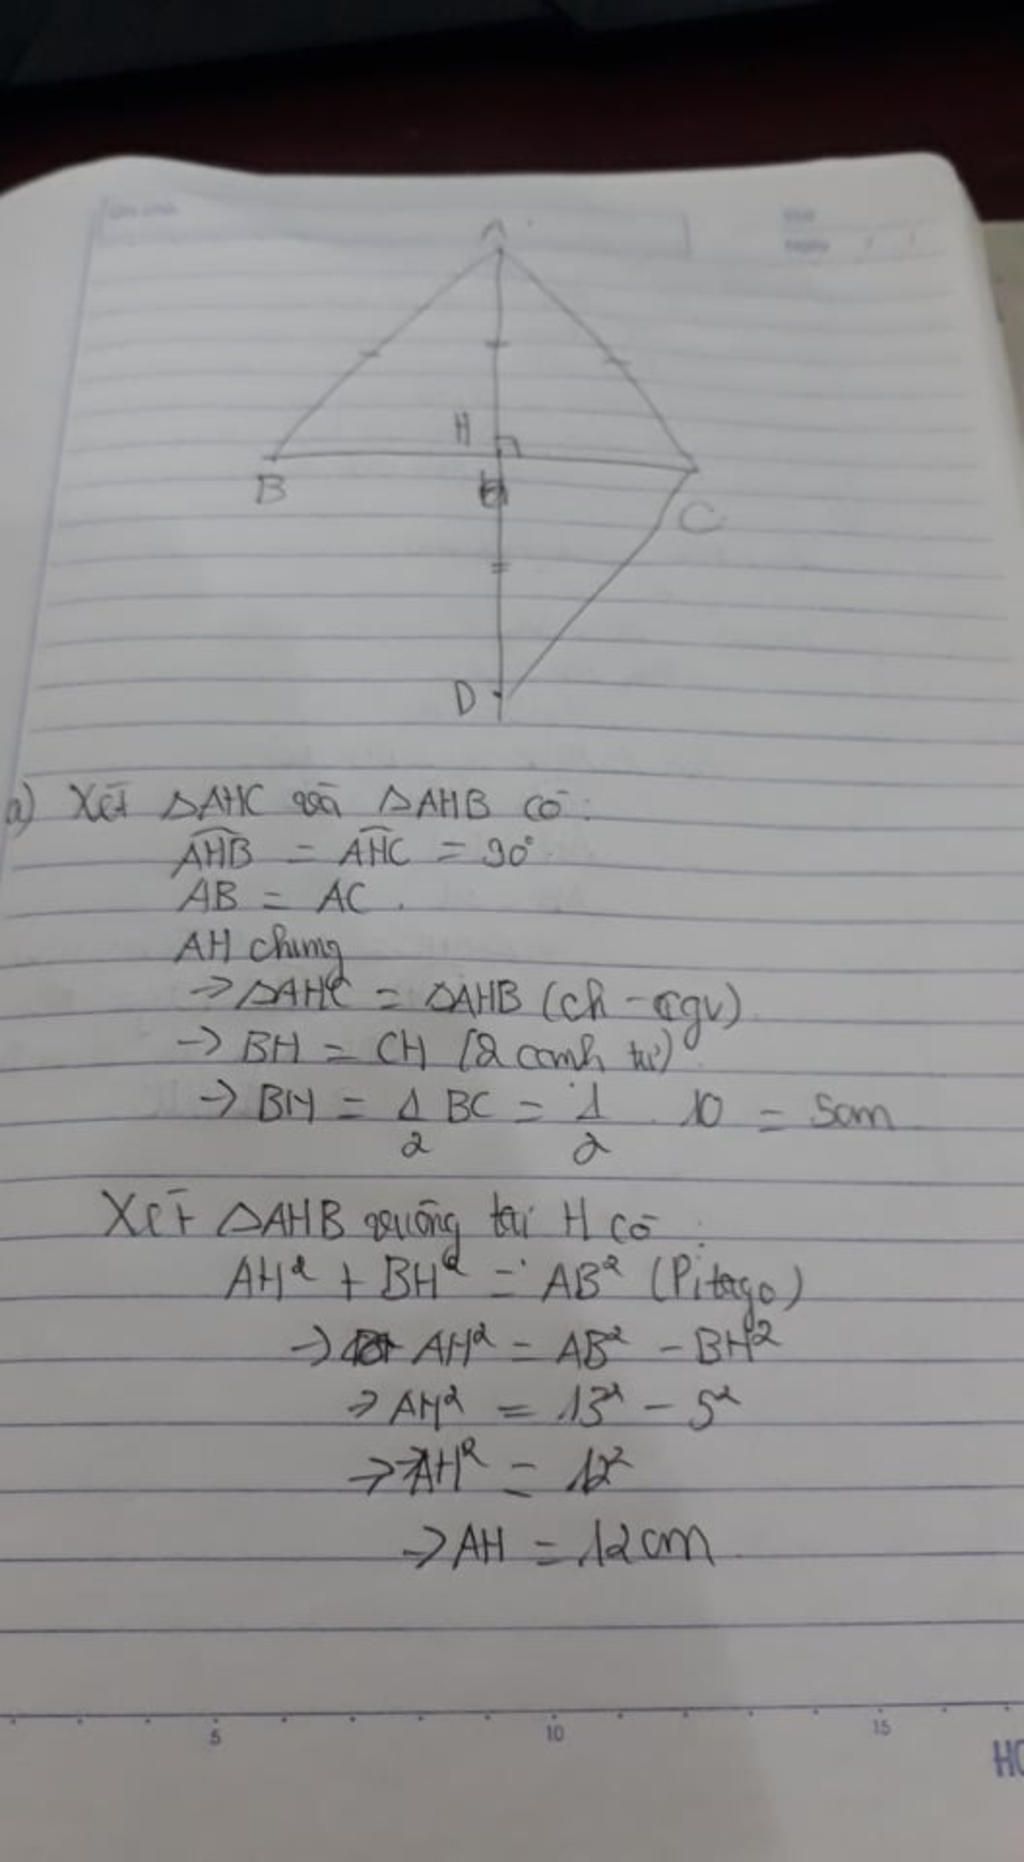 A
H
B
C
D
a) Xét ΔAHC và ΔAHB có:
AHB = AHC = 90°
AB = AC.
AH chung
-> ΔAHC = ΔAHB (ch - cgv)
-> BH = CH (2 cạnh tư)
-> BH = 1/2 BC = 1/2 . 10 = 5cm
Xét ΔAHB vuông tại H có:
AH² + BH² = AB² (Pitago)
-> AH² = AB² - BH²
-> AH² = 13² - 5²
-> AH² = 12²
-> AH = 12cm
5 10 15
HO